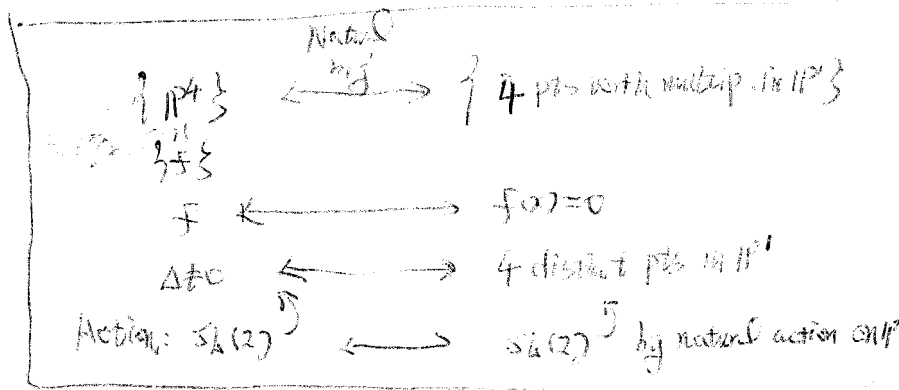 Natural
bij
{ ℙ⁴ } ⟷ { 4 pts with multip. in ℙ¹ }
{ f }
f ⟷ f(x)=0
Δ≠0 ⟷ 4 distinct pts in ℙ¹
Action: SL(2) ⟷ SL(2) by natural action on ℙ¹